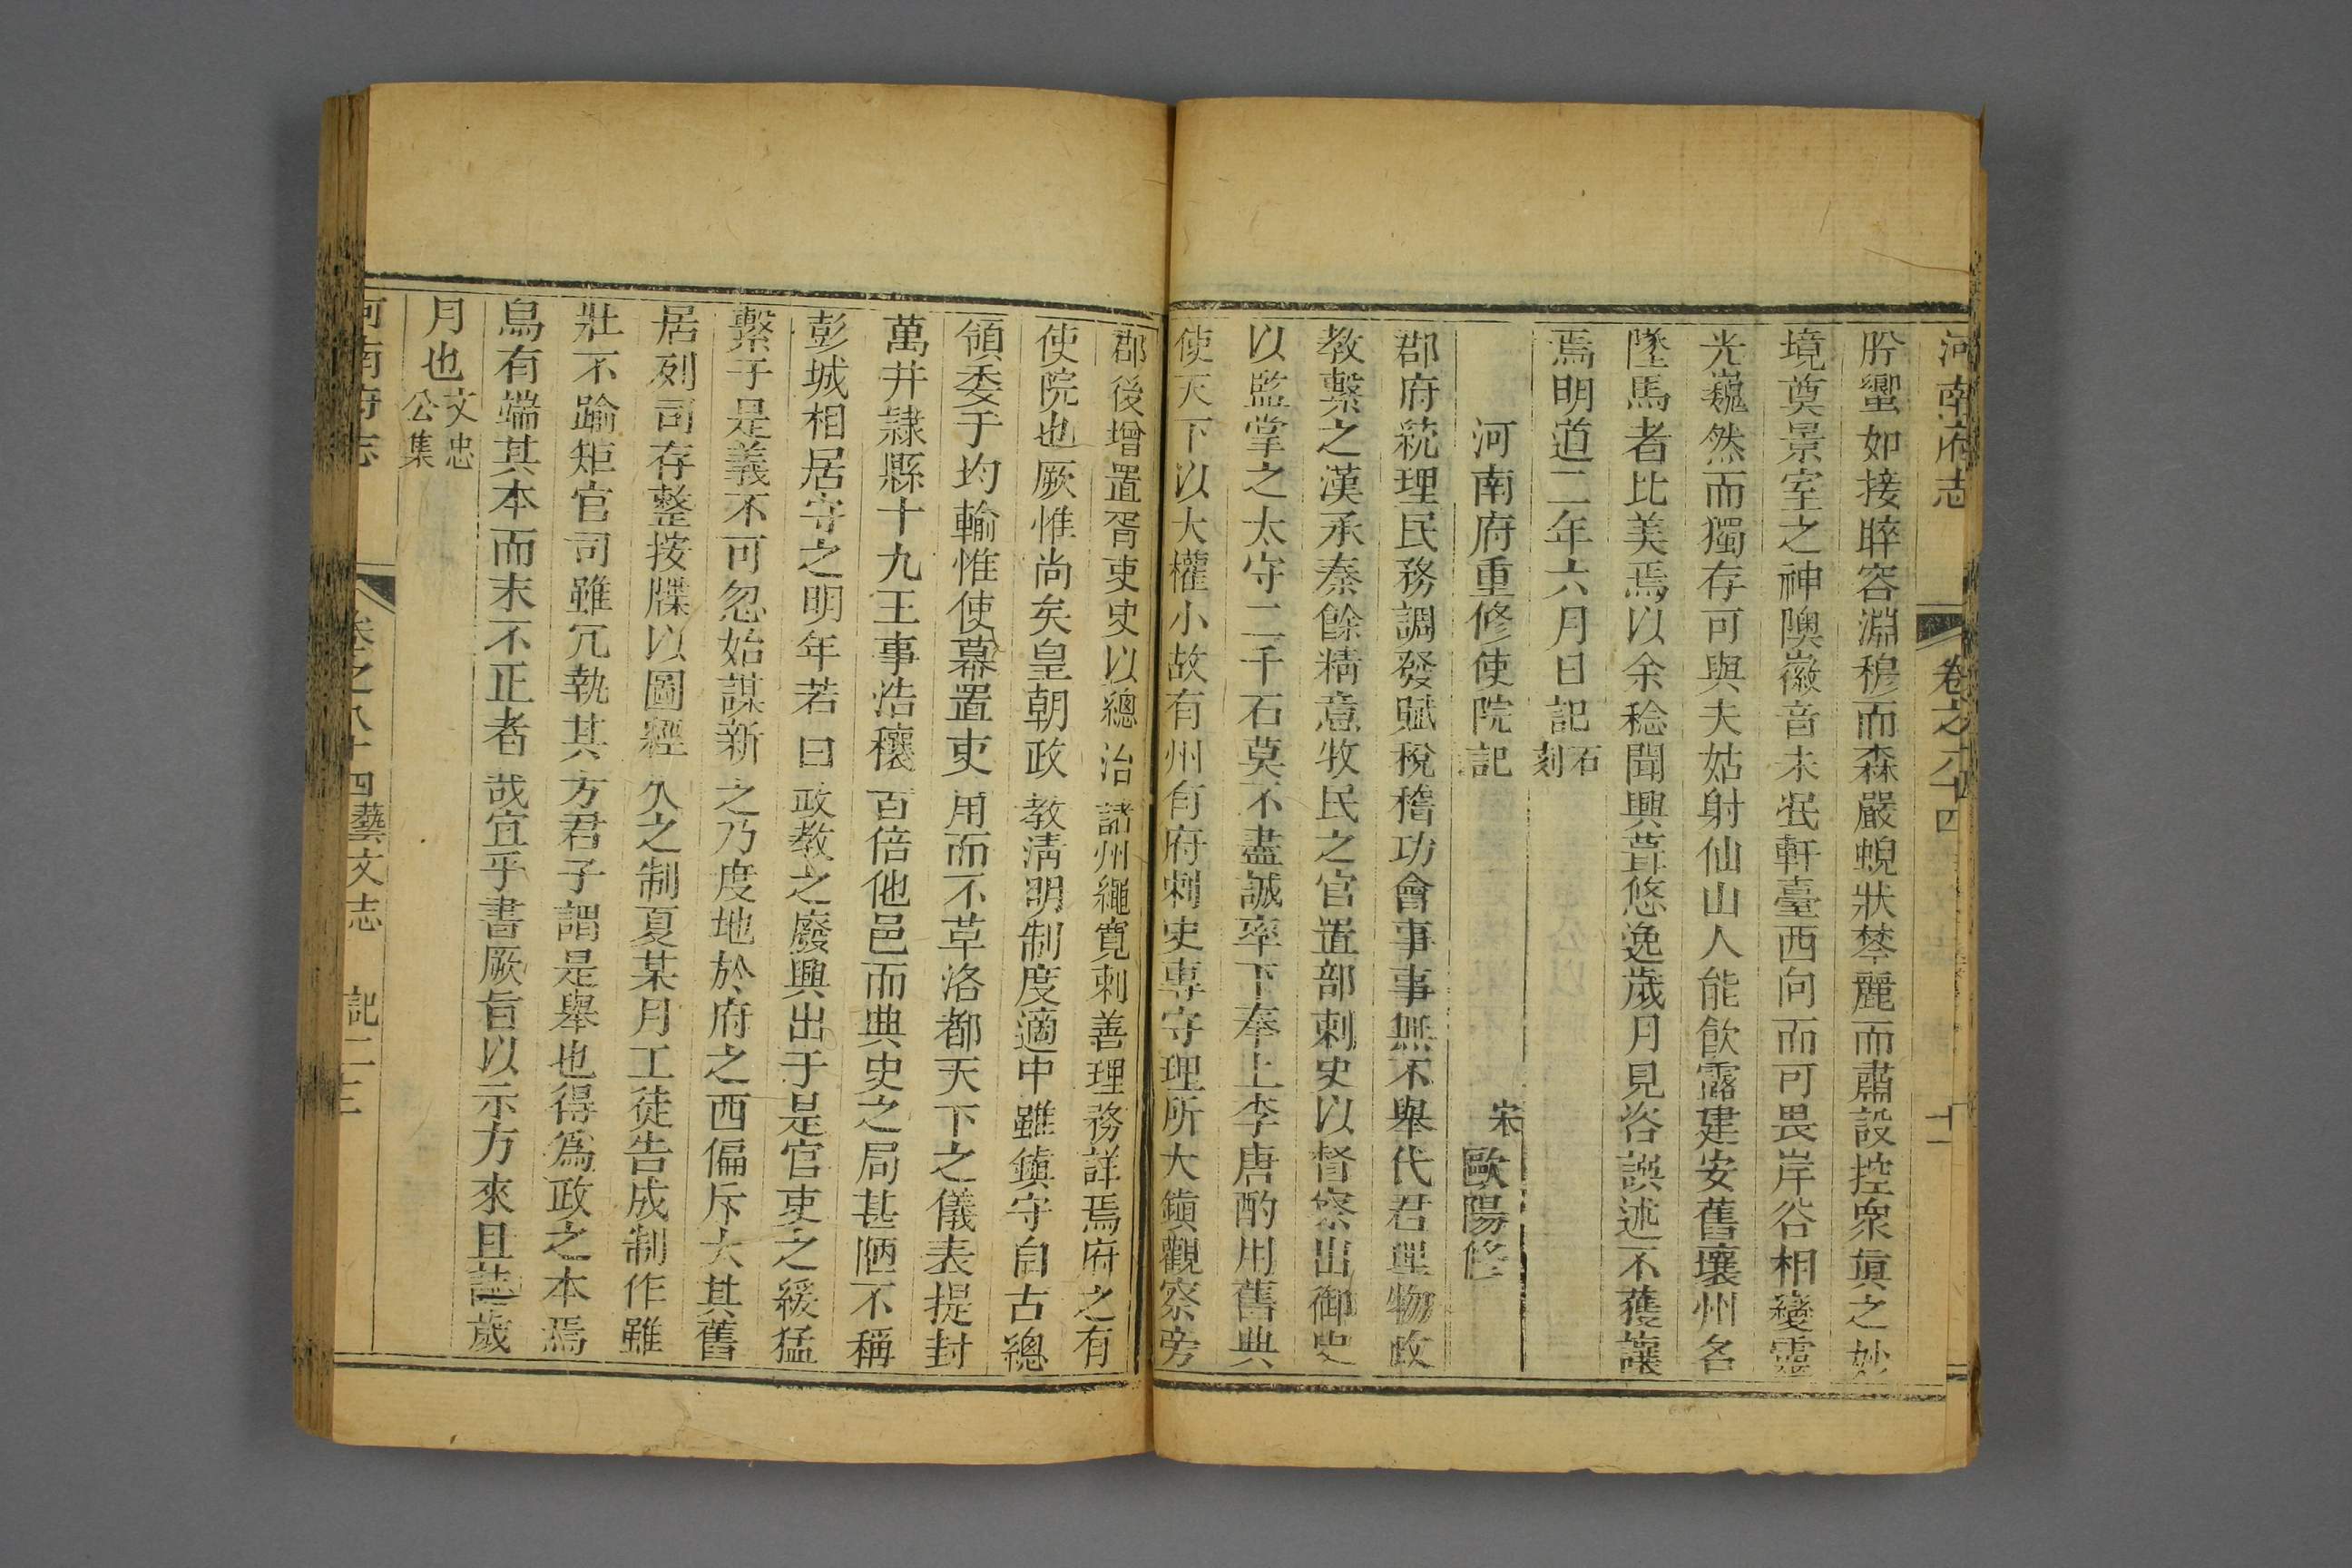 河南府志 卷之八十四 十一
肹蠁如接睟容淵穆而森嚴蜺狀棽麗而肅設控衆真之妙
境奠景室之神隩徽音未泯軒臺西向而可畏岸谷相變靈
光巍然而獨存可與夫姑射仙山人能飲露建安舊壤州名
墜馬者比美焉以余稔聞興葺悠逸歲月見咨誤述不獲讓
焉明道二年六月日記石刻
河南府重修使院記 宋歐陽修
郡府統理民務調發賦稅稽功會事事無不舉代君理物政
教繫之漢承秦餘精意牧民之官置部刺史以督察出御史
以監掌之太守二千石莫不盡誠率下奉上李唐酌用舊典
使天下以大權小故有州有府刺史專守理所大鎭觀察旁
郡後增置胥吏史以總治諸州繩寬刺善理務詳焉府之有
使院也厥惟尚矣皇朝政教淸明制度適中雖鎮守自古總
領委于均輸惟使幕置吏用而不革洛都天下之儀表提封
萬井隷縣十九王事浩穰百倍他邑而典史之局甚陋不稱
彭城相居守之明年若曰政教之廢興出于是官吏之緩猛
繫于是義不可忽始謀新之乃度地於府之西偏斥大其舊
居列司存整按牒以圖經久之制夏某月工徒告成制作雖
壯不踰矩官司雖冗執其方君子謂是舉也得爲政之本焉
烏有端其本而末不正者哉宜乎書厥旨以示方來且誌歲
月也文忠公集
河南府志 卷之八十四 藝文志 記二 三